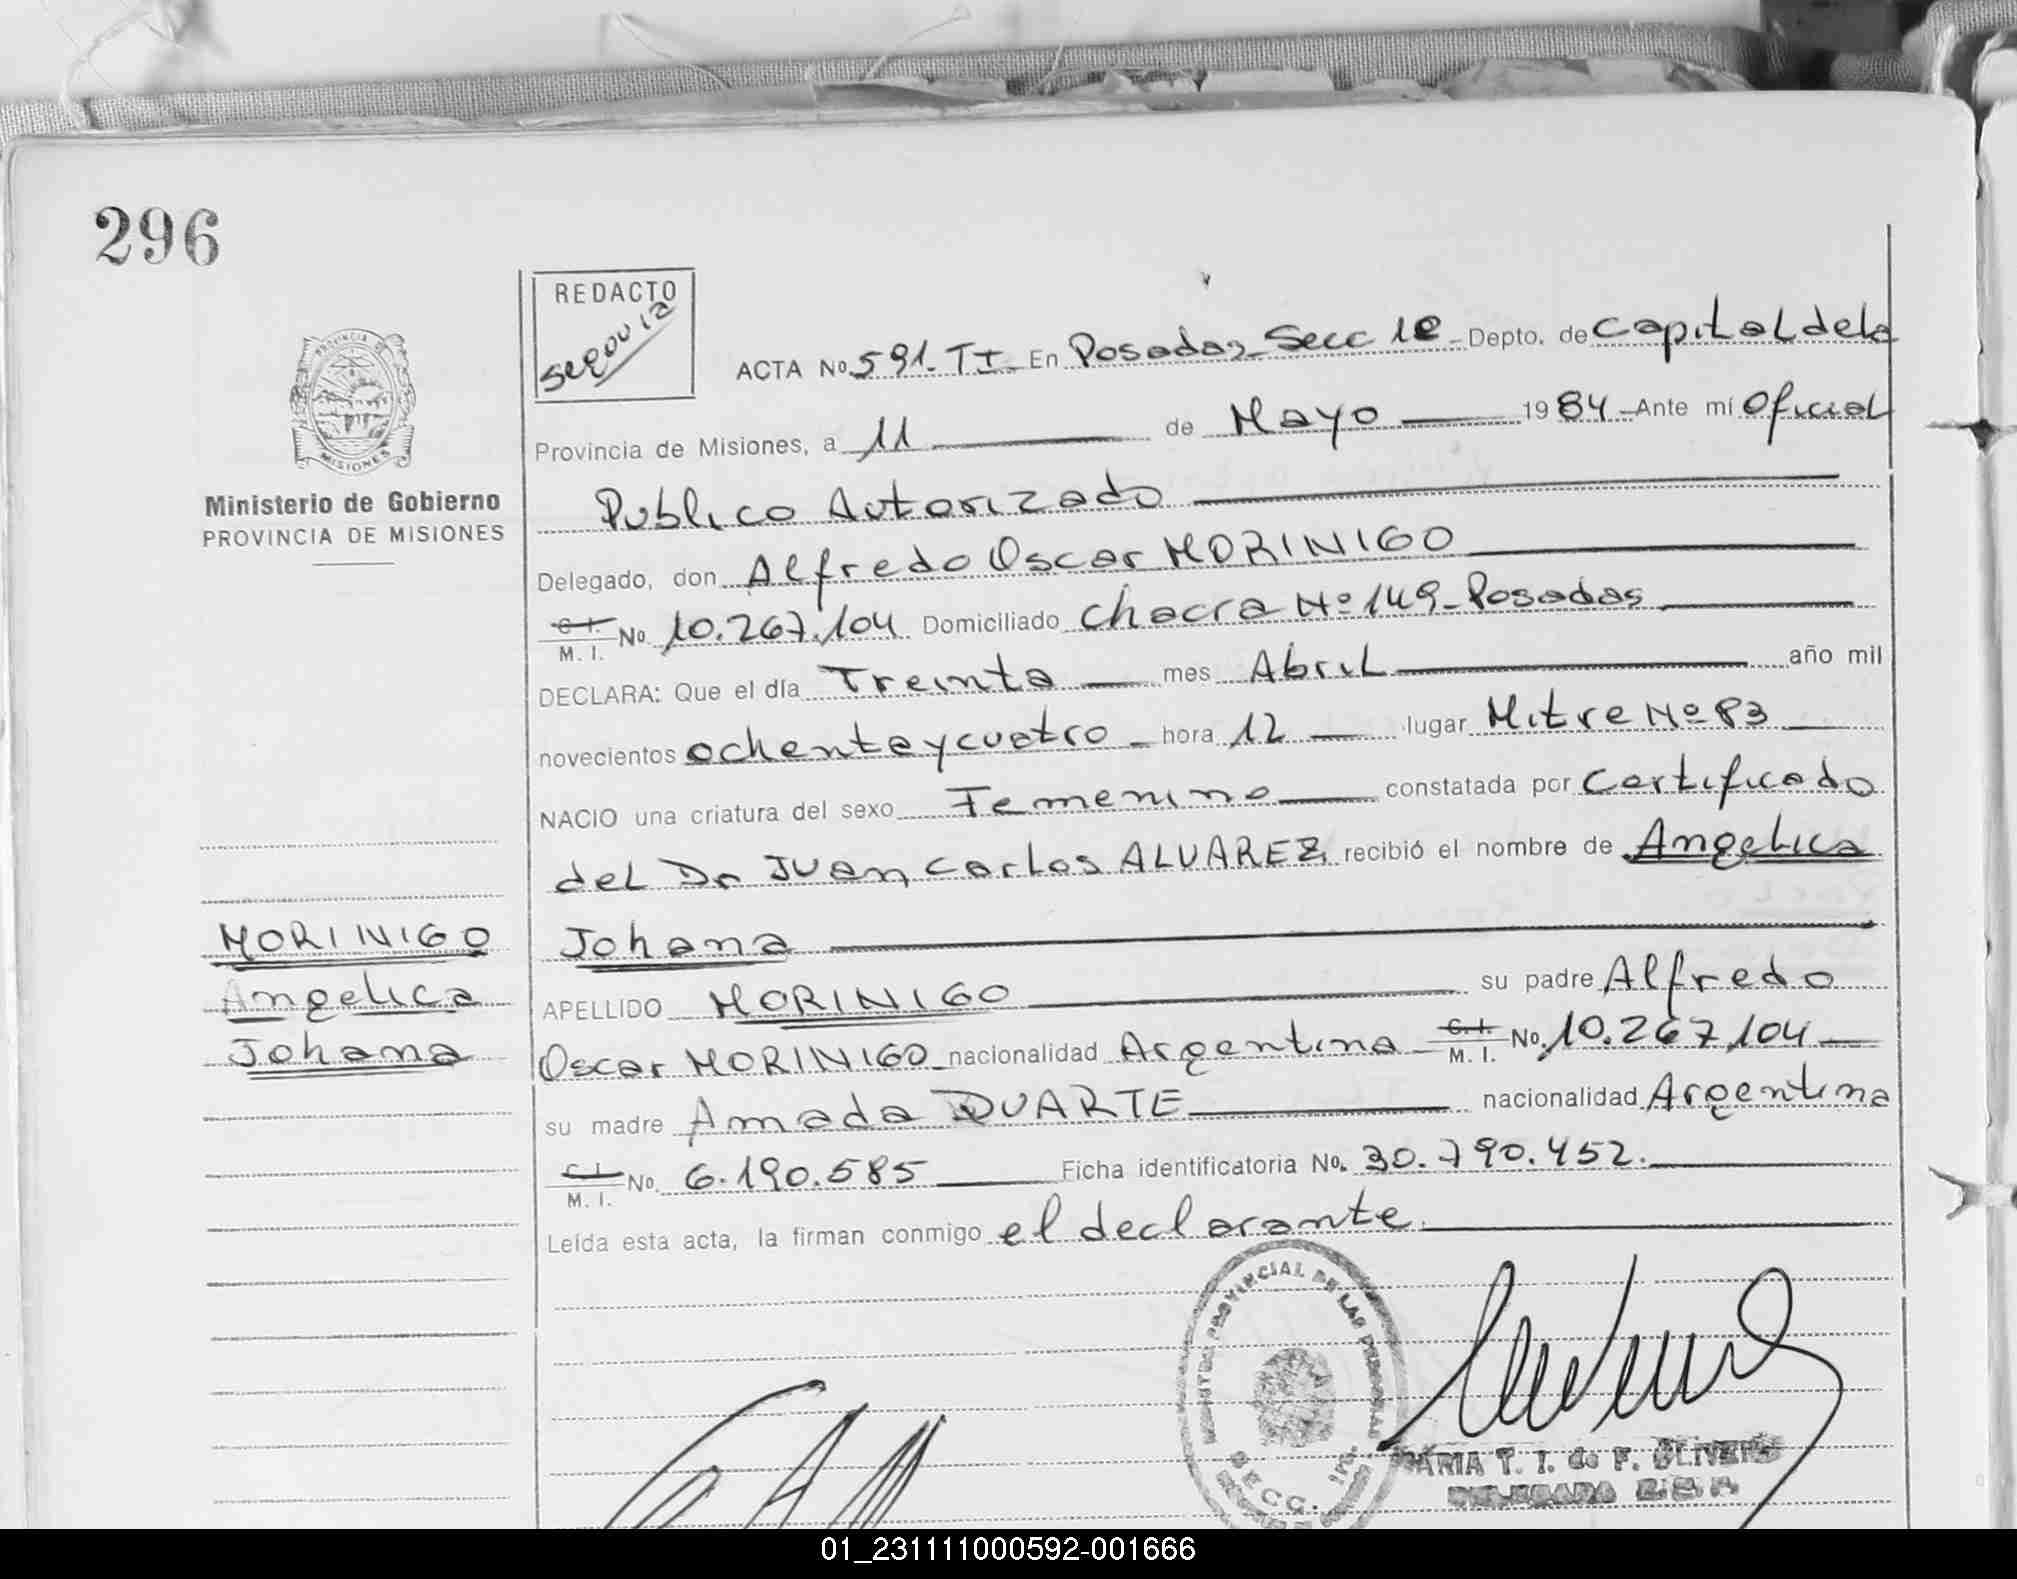 296
REDACTO
PROVINCIA DE
MISIONES
Ministerio de Gobierno
PROVINCIA DE MISIONES
ACTA No 591. TI. En Posadas Secc 1e Depto. de Capital de la
Provincia de Misiones, a 11 de Mayo 1984 Ante mí Oficial
Publico Autorizado
Delegado, don Alfredo Oscar MORINIGO
C. I.
M. I. No. 10.267.104 Domiciliado Chacra Nº 149 - Posadas
DECLARA: Que el día Treinta mes Abril año mil
novecientos ochenta y cuatro hora 12 lugar Mitre Nº 83
NACIO una criatura del sexo Femenino constatada por Certificado
del Dr Juan Carlos ALVAREZ, recibió el nombre de Angelica
Johana
APELLIDO MORINIGO su padre Alfredo
Oscar MORINIGO nacionalidad Argentina C. I.
M. I. No. 10.267.104
su madre Amada DUARTE nacionalidad Argentina
C. I.
M. I. No. 6.190.585 Ficha identificatoria No. 30.790.452.
Leída esta acta, la firman conmigo el declarante.
MORINIGO
Angelica
Johana
PROVINCIAL DE LAS PERSONAS
SECC. 1ra.
MARIA T. I. de F. OLIVEIRA
01_231111000592-001666